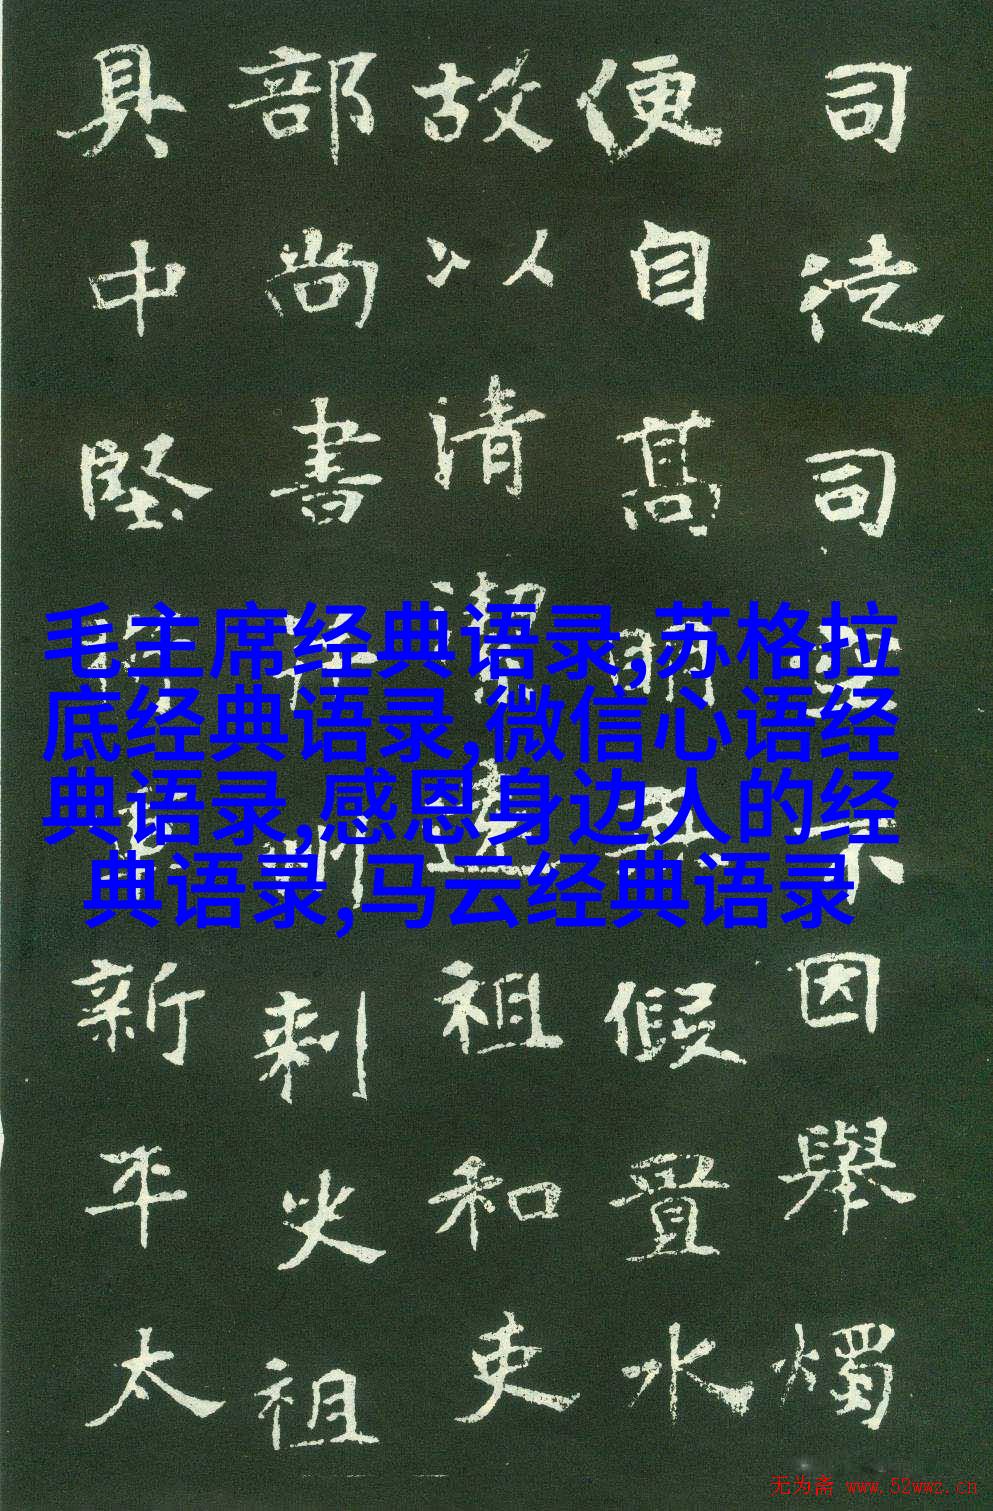 司徒司
因舉燭
便自高明
假置水
故以清潔
祖和吏
部尚書
刺史祖
具中堅將
新平太
毛主席经典语录,苏格拉
底经典语录,微信心语经
典语录,感恩身边人的经
典语录,马云经典语录
无为斋 www.52wwz.cn